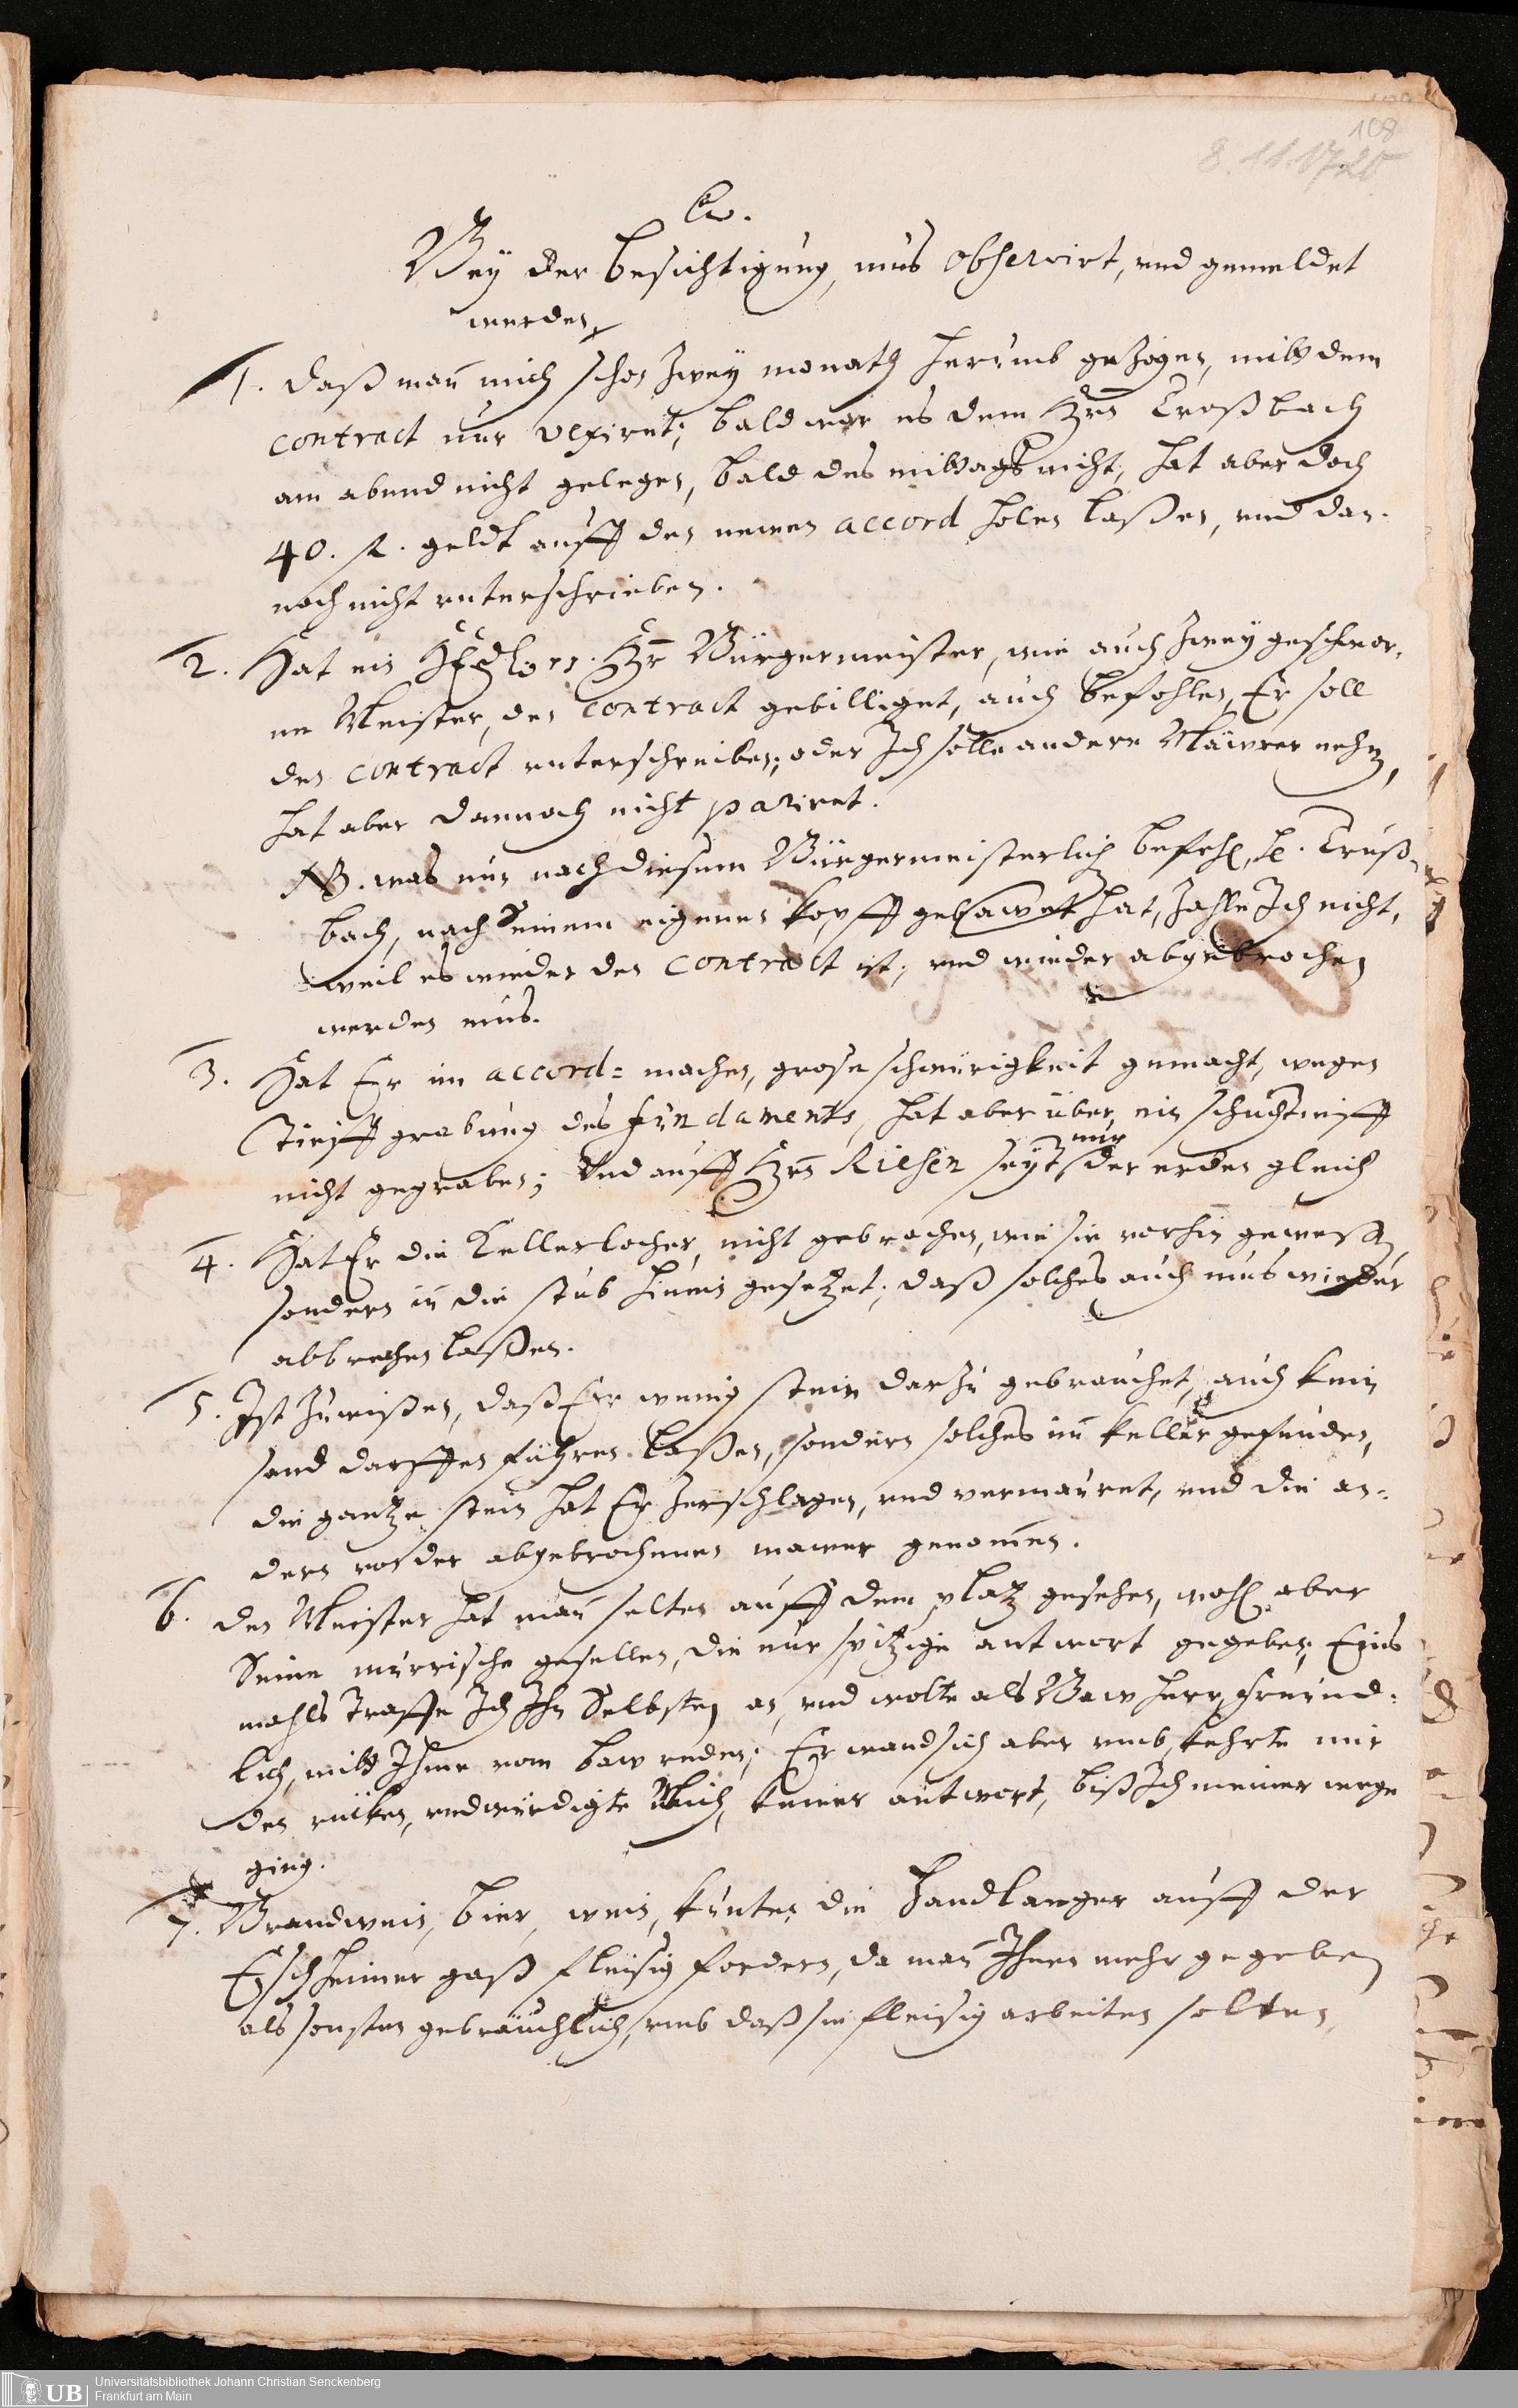 108
8.11.1720
Bey der besichtigung, mus observirt, und gemeldet
werden,
1. daß man mich schon zwey monath herumb gezogen, mitt dem
contract nur vexiret; bald war es dem Hrn Troßbach
am abend nicht gelegen, bald des mittags nicht, hat aber doch
40. fl. geldt auff den newen accord holen laßen, und den-
noch nicht unterschrieben.
2. Hat ein Hr Bürgermeister, wie auch zwey geschwor-
ne Meister, den contract gebilliget, auch befohlen, Er soll
den contract unterschreiben; oder Ich solle andere Mäwrer nehmen,
hat aber dannoch nicht pariret.
NB. was nun nach diesem Bürgermeisterlichen befehl, H. Truß-
bach, nach Seinem eigenen kopff gebawet hat, zahle Ich nicht,
weil es wieder den contract ist, und wieder abgebrochen
werden mus.
3. Hat Er im accord= machen, grose schwürigkeit gemacht, wegen
Tieff grabung des fundaments, hat aber über, ein schuch tieff
nicht gegraben; Und auff Hrn Riesen seyt, nur der erden gleich
4. Hat Er die Kellerlöcher, nicht gebrochen, wie sie vorhin gewesen,
sondern in die stub hinein gesetzet; daß solches auch mus wieder
abbrechen laßen.
5. Ist zuwißen, daß Er wenig stein darzu gebrauchet, auch kein
sand darffen führen laßen, sondern solches im keller gefunden,
die gantze stein hat Er zerschlagen, und vermauret, und die an-
dern von der abgebrochenen mawer genomen.
6. den Meister hat man selten auff dem platz gesehen, wohl aber
Seine mürrische gesellen, die nur spitzige antwort gegeben; Eins
mahls traffe Ich Ihn Selbsten an, und wolte als Bawherr, freund-
lich, mitt Ihme vom baw reden; Er wand sich aber umb, kehrte mir
den rücken, und würdigte Mich, keiner antwort, biß Ich meiner wege
ging.
7. Brandwein, bier, wein, kunten die Handlanger auff der
Eschheimer gaß fleisig fordern, da man Ihnen mehr gegeben
als sonsten gebräuchlich, umb daß sie fleisig arbeiten solten,
UB
Universitätsbibliothek Johann Christian Senckenberg
Frankfurt am Main